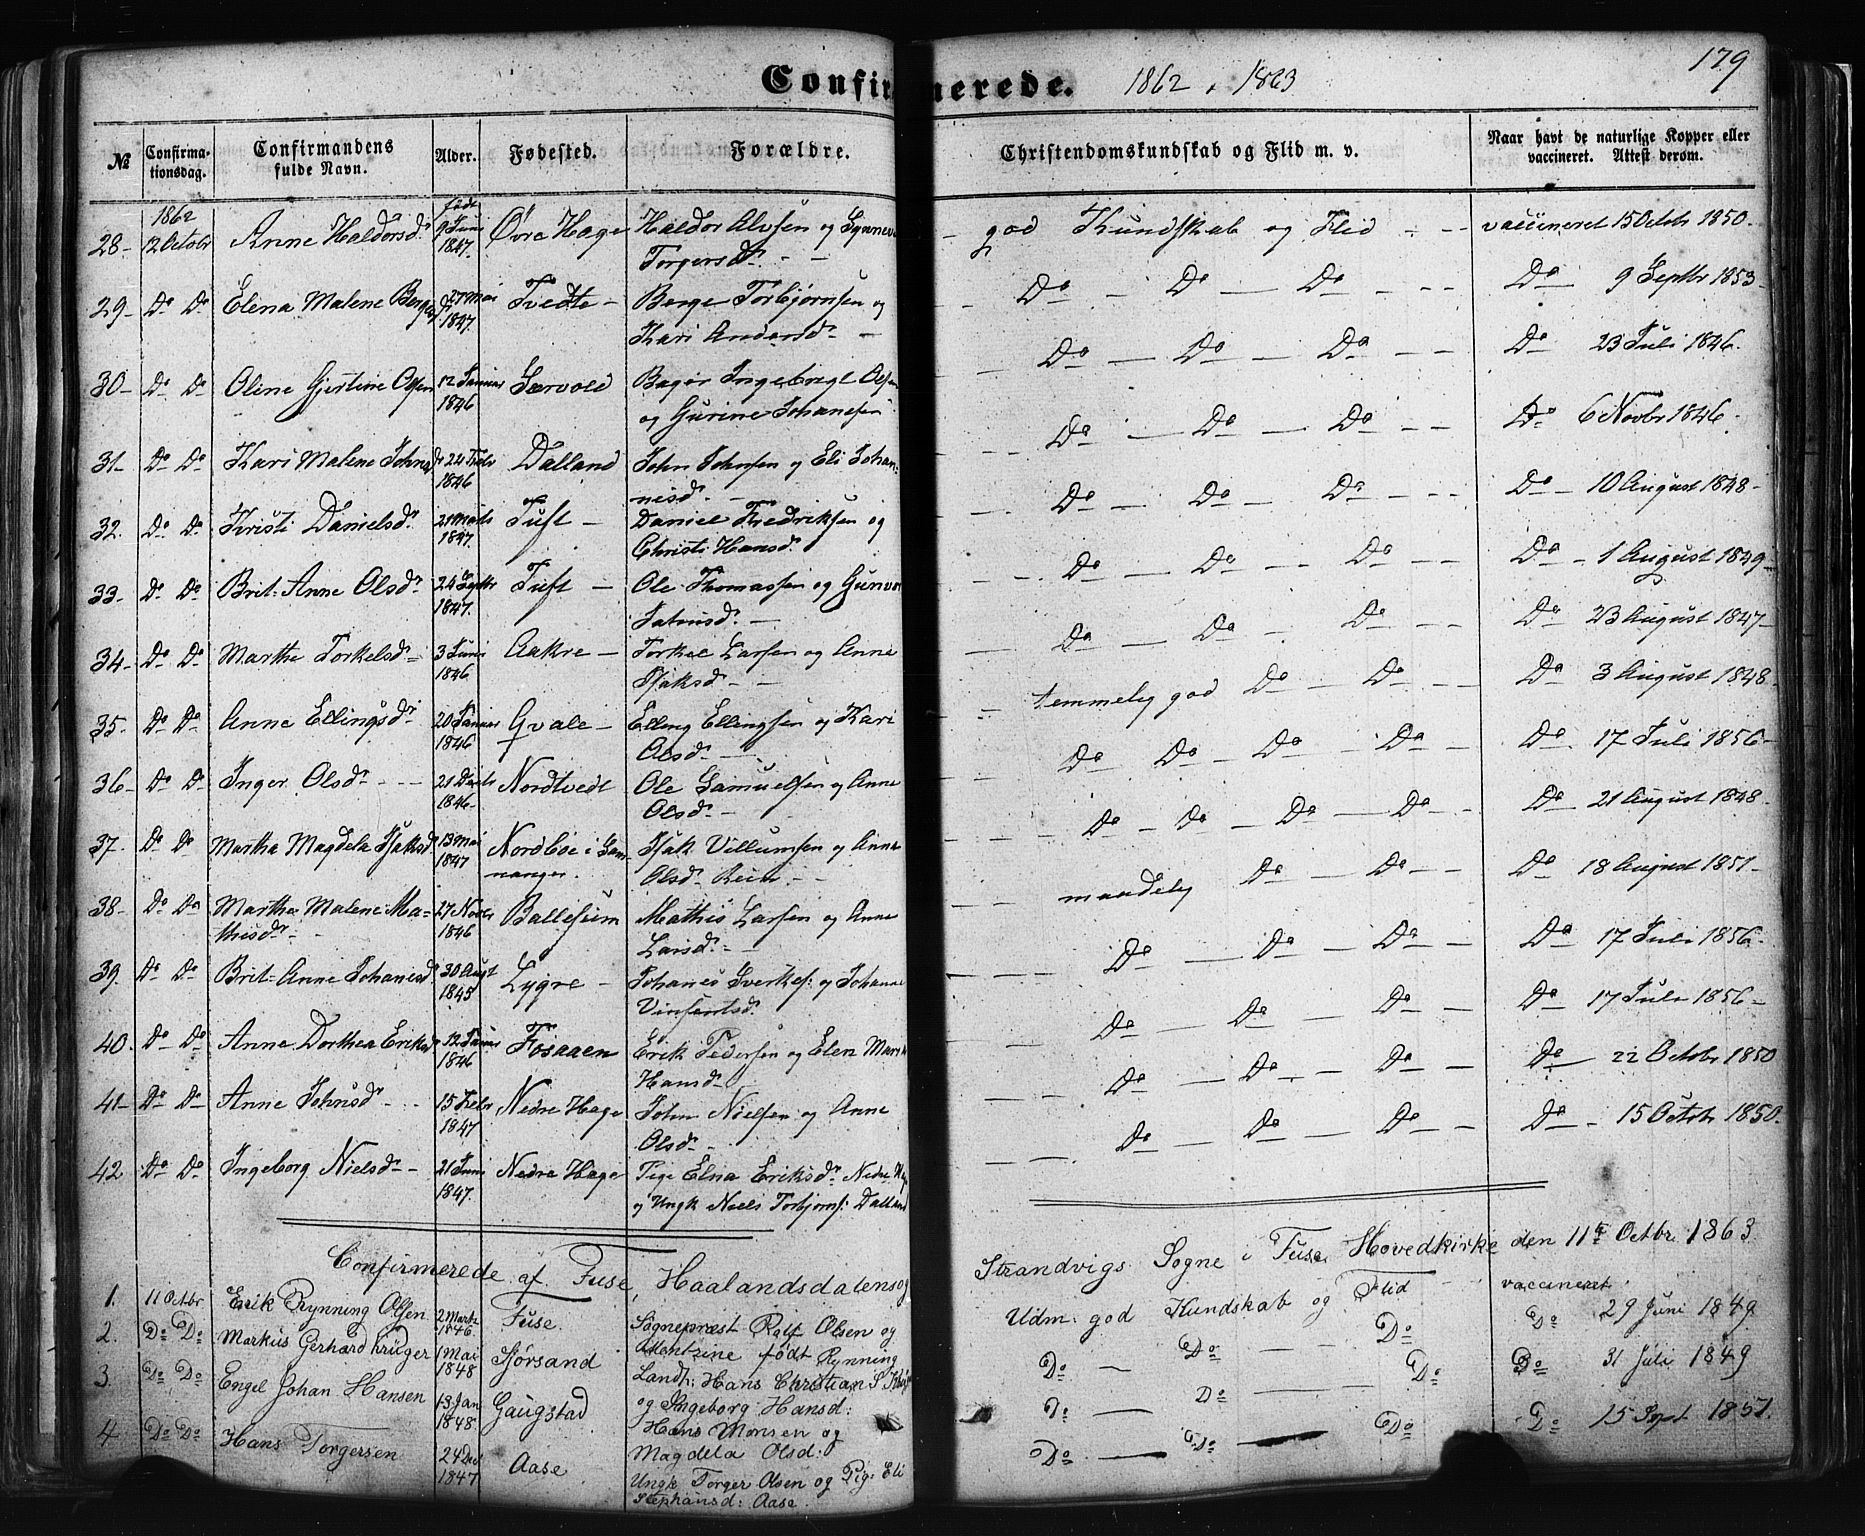 Confirmerede. 1862 . 1863
179
№ Confirmationsdag. Confirmandens fulde Navn. Alder. Fødested. Forældre. Christendomskundskab og Flid m. v. Naar havt de naturlige Kopper eller vaccineret. Attest derom.
28- 1862 12 Octobr Anne Haldorsd. født 9 Juni 1847. Øvre Hage Haldor Alvsen og
Torgersd. - - god Kundskab og Flid - - vaccineret 15 Octbr 1850.
29- Do Do Elena Malene 27 Mai 1847. Tvedte - Berge Torbjørnsen og
Kari Andersd. - Do - Do - Do - - Do 9 Septbr 1853
30- Do Do Oline Gjertine Olsen 12 Januar 1846 Ingebrigt Olsen
og Gurine Johanesen Do - Do - Do - - Do 23 Juli 1846.
31- Do Do Kari Malene 24 Febr 1846 Dalland John Johnsen og Eli Johan-
nisd. - Do - Do - Do - - Do 6 Novbr 1846.
32. Do Do Kristi Danielsd. 1847. Tuft - Daniel Fredriksen og
Christi Hansd. Do - Do - Do - - Do - 10 August 1848-
33- Do Do Brit-Anne Olsd. 24 Septbr 1847. Tuft - Ole Thomassen og Gunvor
Do - Do - Do - Do - 1 August 1849-
34- Do Do Martha Torkelsd- 3 Juni 1846 Aakre - Torkel Larsen og Anne
Isaksd. - - Do - Do - Do - Do 23 August 1847-
35- Do Do Anne Ellingsd. 20 Januar 1846 Qvale - Elling Ellingsen og Kari
Olsd. - temmelig god Do - Do - Do - 3 August 1848-
36- Do Do Inger Olsd. - - 21 1846- Nordtvedt Ole Samuelsen og Anne
Olsd. - Do Do - Do - Do - Do - 17 Juli 1856-
37. Do Do Martha Magdela Isaksd 13 Mai 1847 Nordbøe i Sam-
nanger. Isak Villumsen og Anne
Olsd. - - Do - Do - Do - Do - Do - 21 August 1848-
38- Do Do Martha Malene Ma-
thisd. - 27 Novbr 1846 Balleseim Mathis Larsen og Anne
Larsd. - maadelig Do - Do - - Do 18 August 1851-
39. Do Do Brit-Anne Johanesd. 30 Augt 1845 Lygre - Johanes og Johanne
Vinsentsd. Do - Do - Do - Do 17 Juli 1856-
40. Do Do Anne Dorthea Eriksd 12 Januar 1846 Fosaaen Erik Pedersen og Elen
Hansd. - Do - Do - Do - Do 17 Juli 1856-
41- Do Do Anne Johnsd. - 15 Febr 1847 Nedre Hage John Nielsen og Anne
Olsd. - Do - Do - Do - Do - 22 Octbr 1850
42 Do Do Ingeborg Nielsd.- 21 Juni 1847. Nedre Hage Pige Elna Eriksd. Nedre
og Ungk Niels Torbjørns: Do - Do - Do - Do - 15 Octbr 1850.
Confirmerede af Fuse, Haalandsdalens og Strandvigs Sogne i Fuse Hovedkirke den 11te Octbr. 1863.
1. 11 Octbr Erik Rynning Olsen 2 Marts 1846. Fuse. Sognepræst Rolf Olsen og
født Rynning Udm. god Kundskab og Flid vaccineret 29 Juni 1849
2. Do Do Markus Gerhard Krüger 1 Mai 1848 Landh: Hans Christian S.
og Ingeborg Hansd: Do - Do - - Do Do 31 Juli 1849
3. Do Do Engel Johan Hansen 13 Jan 1848. Gaugstad Hans Monsen og
Magdela Olsd: Do - Do - - Do - Do - 15 Sept 1851.
4. Do Do Hans Torgersen 24 Dec 1847 Aase. Ungk. Torger Olsen og Pig: Eli
Stephansd: Aase. Do - Do - Do